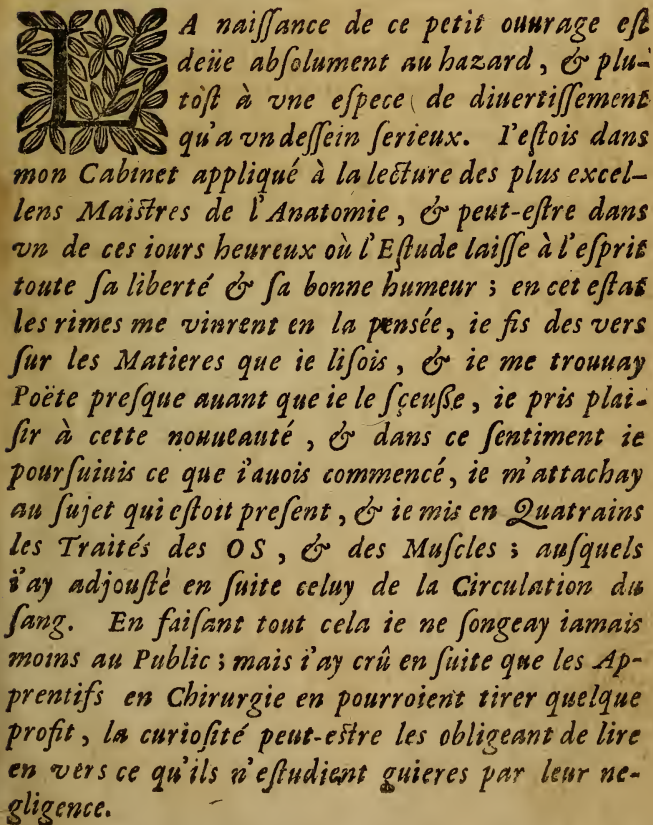 LA naiſſance de ce petit ouurage eſt
deüe abſolument au hazard, & plu-
toſt à vne eſpece de diuertiſſement
qu'a vn deſſein ſerieux. I'eſtois dans
mon Cabinet appliqué à la lecture des plus excel-
lens Maiſtres de l'Anatomie, & peut-eſtre dans
vn de ces iours heureux où l'Eſtude laiſſe à l'eſprit
toute ſa liberté & ſa bonne humeur ; en cet eſtat
les rimes me vinrent en la pensée, ie fis des vers
ſur les Matieres que ie liſois, & ie me trouuay
Poëte preſque auant que ie le ſçeuſſe, ie pris plai-
ſir à cette nouueauté, & dans ce ſentiment ie
pourſuiuis ce que i'auois commencé, ie m'attachay
au ſujet qui eſtoit preſent, & ie mis en Quatrains
les Traités des OS, & des Muſcles ; auſquels
i'ay adjouſtè en ſuite celuy de la Circulation du
ſang. En faiſant tout cela ie ne ſongeay iamais
moins au Public ; mais i'ay crû en ſuite que les Ap-
prentifs en Chirurgie en pourroient tirer quelque
profit, la curioſité peut-eſtre les obligeant de lire
en vers ce qu'ils n'eſtudient guieres par leur ne-
gligence.